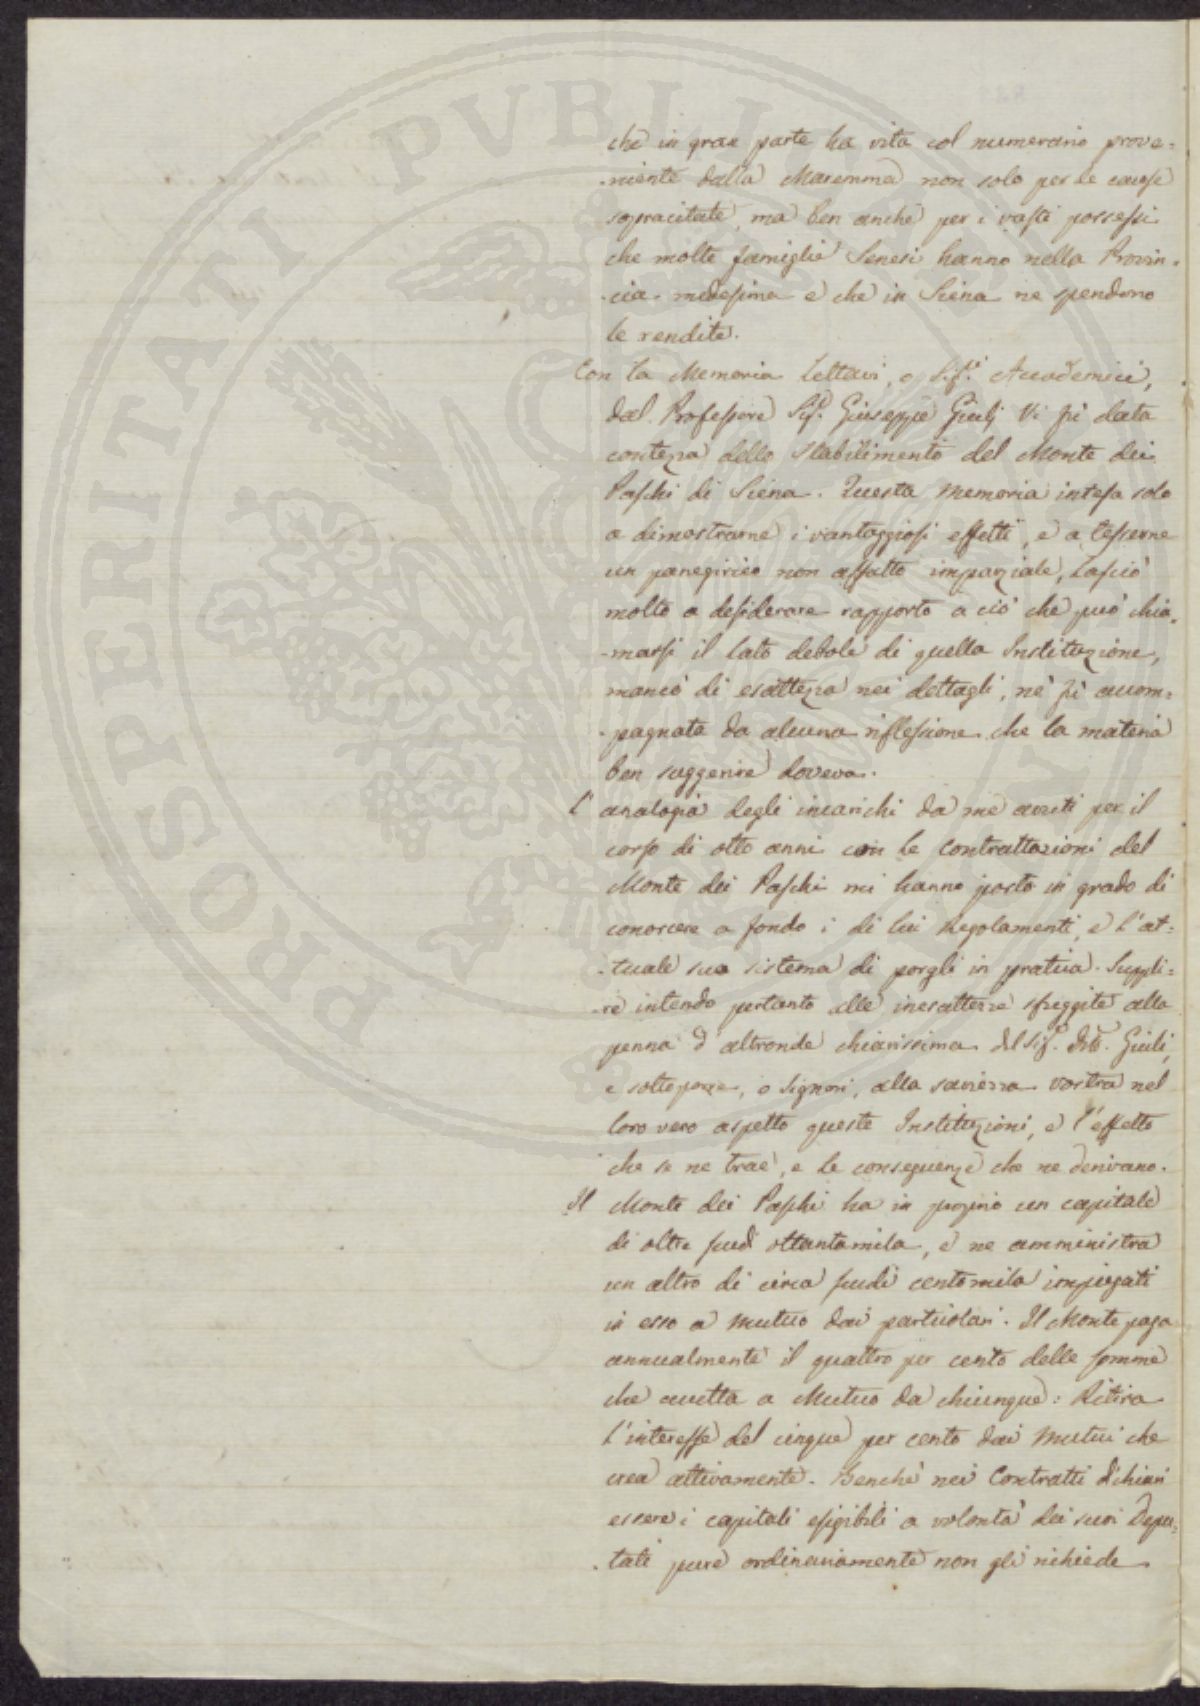 che in gran parte ha vita col numerario prove=
=niente dalla Maremma non solo per le cause
sopracitate, ma ben anche per i vasti possessi
che molte famiglie Senesi hanno nella Provin=
=cia medesima e che in Siena ne spendono
le rendite.
Con la Memoria lettavi, o Sigi. Accademici,
dal Professore Sig. Giuseppe Giulj Vi fù data
contezza dello stabilimento del Monte dei
Paschi di Siena. Questa memoria intesa solo
a dimostrarne i vantaggiosi effetti, e a tesserne
un panegirico non affatto imparziale, lasciò
molto a desiderare rapporto a ciò che può chia=
=marsi il lato debole di quella Instituzione,
mancò di esattezza nei dettagli, nè fù accom=
=pagnata da alcuna riflessione che la materia
ben suggerire doveva.
L'analogia degli incarichi da me avuti per il
corso di otto anni con le contrattazioni del
Monte dei Paschi mi hanno posto in grado di
conoscere a fondo i di lui Regolamenti, e l'at=
=tuale suo sistema di porgli in pratica. Suppli=
=re intendo pertanto alle inesattezze sfuggite alla
penna d'altronde chiarissima del Sig. Dott. Giulj,
e sottoporre, o Signori, alla saviezza vostra nel
loro vero aspetto queste Instituzioni, e l'effetto
che se ne trae, e le conseguenze che ne derivano.
Il Monte dei Paschi ha in proprio un capitale
di oltre scudi ottantamila, e ne amministra
un altro di circa scudi centomila impiegati
in esso a mutuo dai particolari. Il Monte paga
annualmente il quattro per cento delle somme
che accetta a Mutuo da chiunque: Ritira
l'interesse del cinque per cento dai Mutui che
crea attivamente. Benchè nei Contratti dichiari
essere i capitali esigibili a volontà dei suoi Depu=
=tati pure ordinariamente non gli richiede
PROSPERITATI PVBLICAE